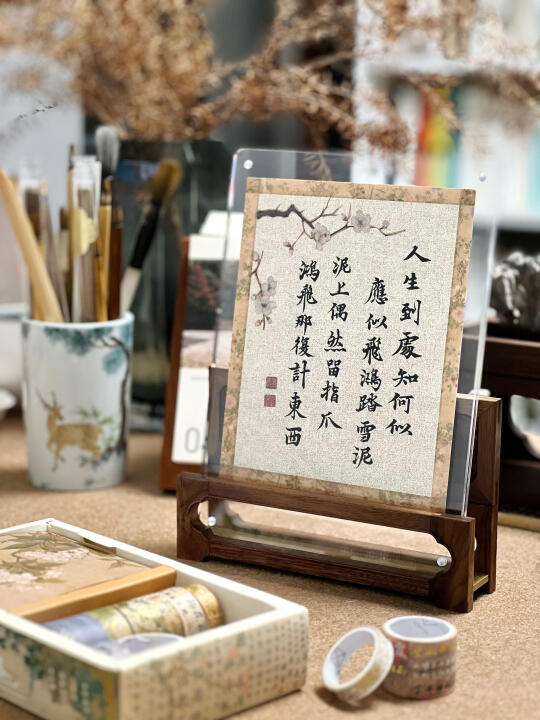 人生到處知何似
應似飛鴻踏雪泥
泥上偶然留指爪
鴻飛那復計東西